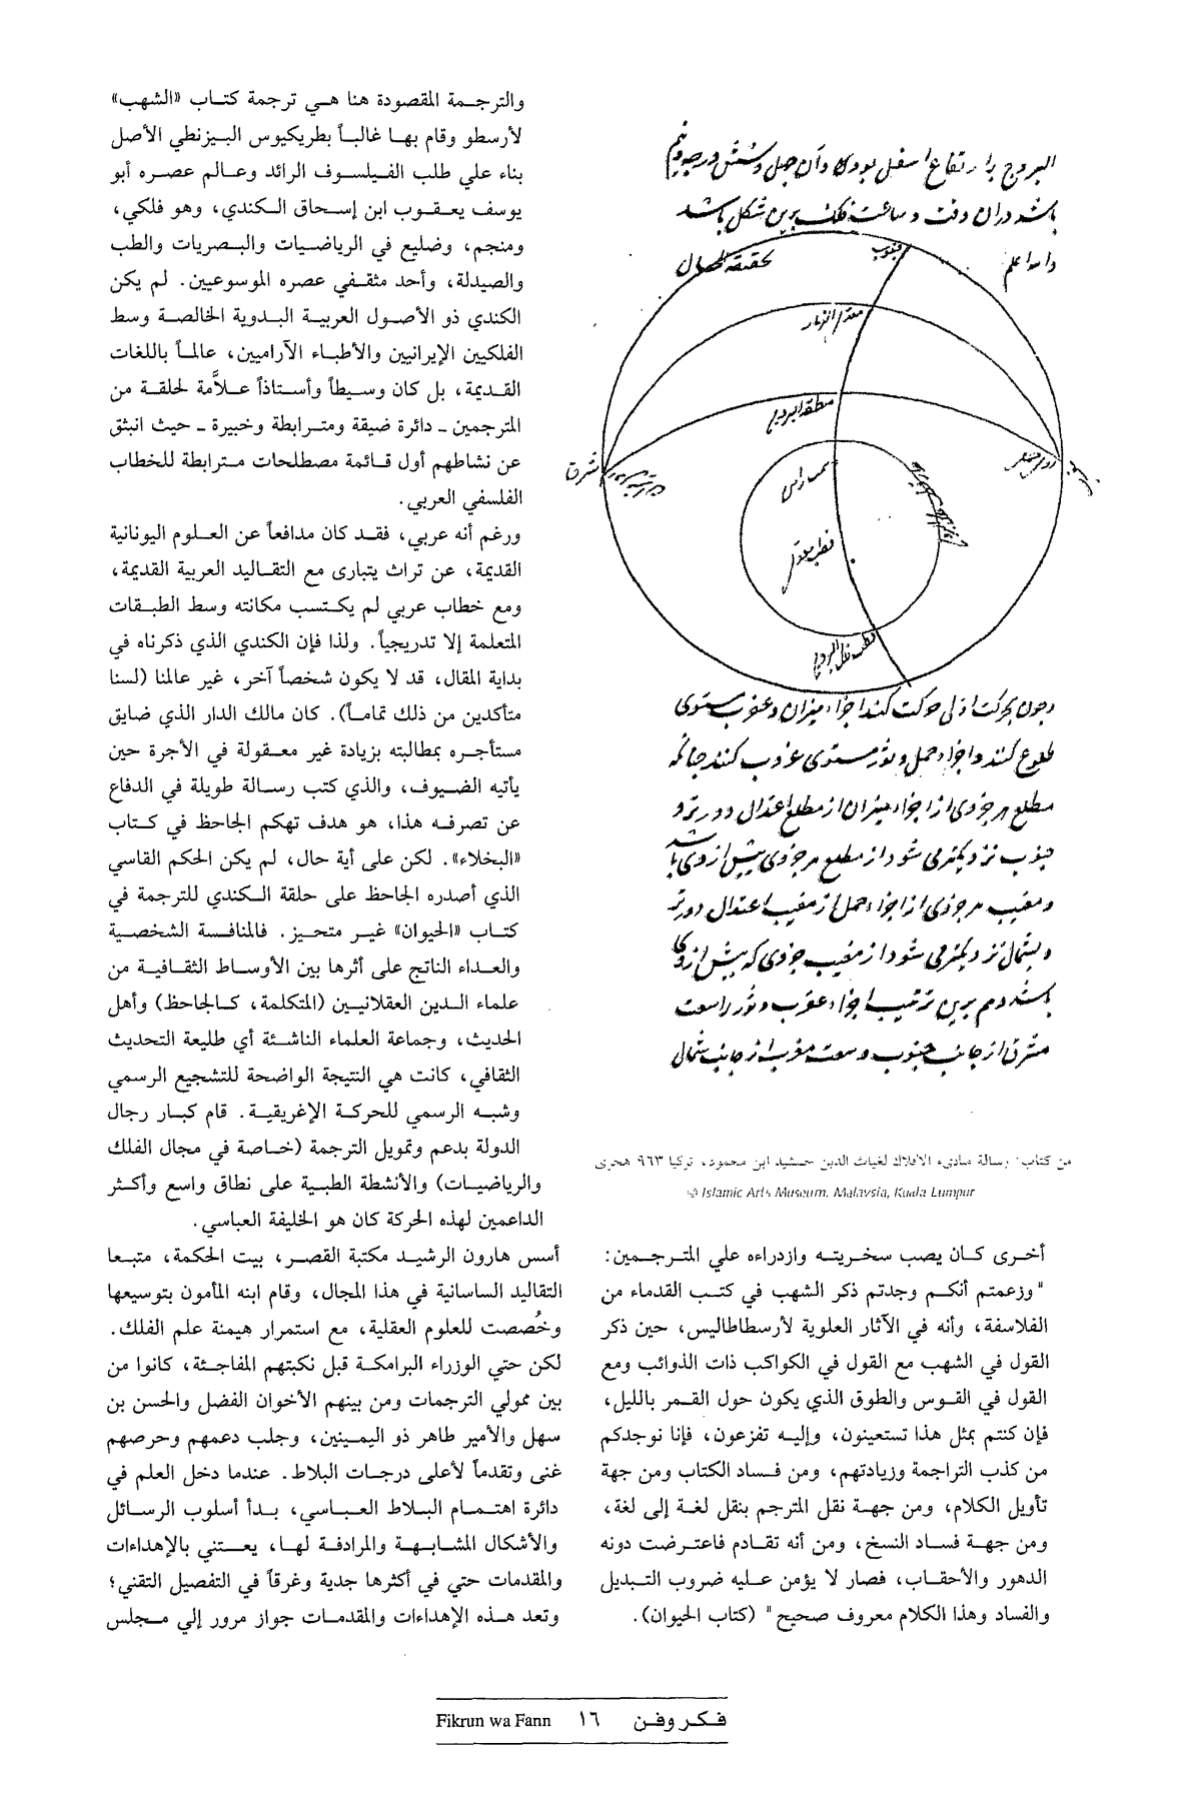 باشد دران وقت وساعت فلک برین شکل باشد
جنوب
معدل النهار
منطقة البروج
سمت راس
قطب معدل
قطب فلك البروج
وچون بحرکت اولی حرکت کند اجزاء میزان وعقرب مستوی
طلوع کنند واجزاء حمل وثور مستوی غروب کنند چنانکه
مطلع هر جزوی از اجزاء میزان از مطلع اعتدال دورتر و
بجنوب نزدیکتر می شود از مطلع هر جزوی پیش از وی باشد
ومغیب هر جزوی از اجزاء حمل از مغیب اعتدال دورتر
وبشمال نزدیکتر می شود از مغیب جزوی که پیش از
باشد وهم برین ترتیب اجزاء عقرب وثور را سعت
مشرق از جانب جنوب وسعت مغرب از جانب شمال
من كتاب: رسالة مبادىء الافلاك لغياث الدين جمشيد ابن محمود، تركيا ٩٦٣ هجرى
© Islamic Arts Museum, Malaysia, Kuala Lumpur
أخرى كان يصب سخريته وازدراءه علي المترجمين:
"وزعمتم أنكم وجدتم ذكر الشهب في كتب القدماء من
الفلاسفة، وأنه في الآثار العلوية لأرسطاطاليس، حين ذكر
القول في الشهب مع القول في الكواكب ذات الذوائب ومع
القول في القوس والطوق الذي يكون حول القمر بالليل،
فإن كنتم بمثل هذا تستعينون، وإليه تفزعون، فإنا نوجدكم
من كذب التراجمة وزيادتهم، ومن فساد الكتاب ومن جهة
تأويل الكلام، ومن جهة نقل المترجم بنقل لغة إلى لغة،
ومن جهة فساد النسخ، ومن أنه تقادم فاعترضت دونه
الدهور والأحقاب، فصار لا يؤمن عليه ضروب التبديل
والفساد وهذا الكلام معروف صحيح" (كتاب الحيوان).
والترجمة المقصودة هنا هي ترجمة كتاب «الشهب»
لأرسطو وقام بها غالباً بطريكيوس البيزنطي الأصل
بناء علي طلب الفيلسوف الرائد وعالم عصره أبو
يوسف يعقوب ابن إسحاق الكندي، وهو فلكي،
ومنجم، وضليع في الرياضيات والبصريات والطب
والصيدلة، وأحد مثقفي عصره الموسوعيين. لم يكن
الكندي ذو الأصول العربية البدوية الخالصة وسط
الفلكيين الإيرانيين والأطباء الآراميين، عالماً باللغات
القديمة، بل كان وسيطاً وأستاذاً علاَّمة لحلقة من
المترجمين ـ دائرة ضيقة ومترابطة وخبيرة ـ حيث انبثق
عن نشاطهم أول قائمة مصطلحات مترابطة للخطاب
الفلسفي العربي.
ورغم أنه عربي، فقد كان مدافعاً عن العلوم اليونانية
القديمة، عن تراث يتبارى مع التقاليد العربية القديمة،
ومع خطاب عربي لم يكتسب مكانته وسط الطبقات
المتعلمة إلا تدريجياً. ولذا فإن الكندي الذي ذكرناه في
بداية المقال، قد لا يكون شخصاً آخر، غير عالمنا (لسنا
متأكدين من ذلك تماماً). كان مالك الدار الذي ضايق
مستأجره بمطالبته بزيادة غير معقولة في الأجرة حين
يأتيه الضيوف، والذي كتب رسالة طويلة في الدفاع
عن تصرفه هذا، هو هدف تهكم الجاحظ في كتاب
«البخلاء». لكن على أية حال، لم يكن الحكم القاسي
الذي أصدره الجاحظ على حلقة الكندي للترجمة في
كتاب «الحيوان» غير متحيز. فالمنافسة الشخصية
والعداء الناتج على أثرها بين الأوساط الثقافية من
علماء الدين العقلانيين (المتكلمة، كالجاحظ) وأهل
الحديث، وجماعة العلماء الناشئة أي طليعة التحديث
الثقافي، كانت هي النتيجة الواضحة للتشجيع الرسمي
وشبه الرسمي للحركة الإغريقية. قام كبار رجال
الدولة بدعم وتمويل الترجمة (خاصة في مجال الفلك
والرياضيات) والأنشطة الطبية على نطاق واسع وأكثر
الداعمين لهذه الحركة كان هو الخليفة العباسي.
أسس هارون الرشيد مكتبة القصر، بيت الحكمة، متبعا
التقاليد الساسانية في هذا المجال، وقام ابنه المأمون بتوسيعها
وخُصصت للعلوم العقلية، مع استمرار هيمنة علم الفلك.
لكن حتي الوزراء البرامكة قبل نكبتهم المفاجئة، كانوا من
بين ممولي الترجمات ومن بينهم الأخوان الفضل والحسن بن
سهل والأمير طاهر ذو اليمينين، وجلب دعمهم وحرصهم
غنى وتقدماً لأعلى درجات البلاط. عندما دخل العلم في
دائرة اهتمام البلاط العباسي، بدأ أسلوب الرسائل
والأشكال المشابهة والمرادفة لها، يعتني بالإهداءات
والمقدمات حتي في أكثرها جدية وغرقاً في التفصيل التقني؛
وتعد هذه الإهداءات والمقدمات جواز مرور إلي مجلس
Fikrun wa Fann ١٦ فكر وفن